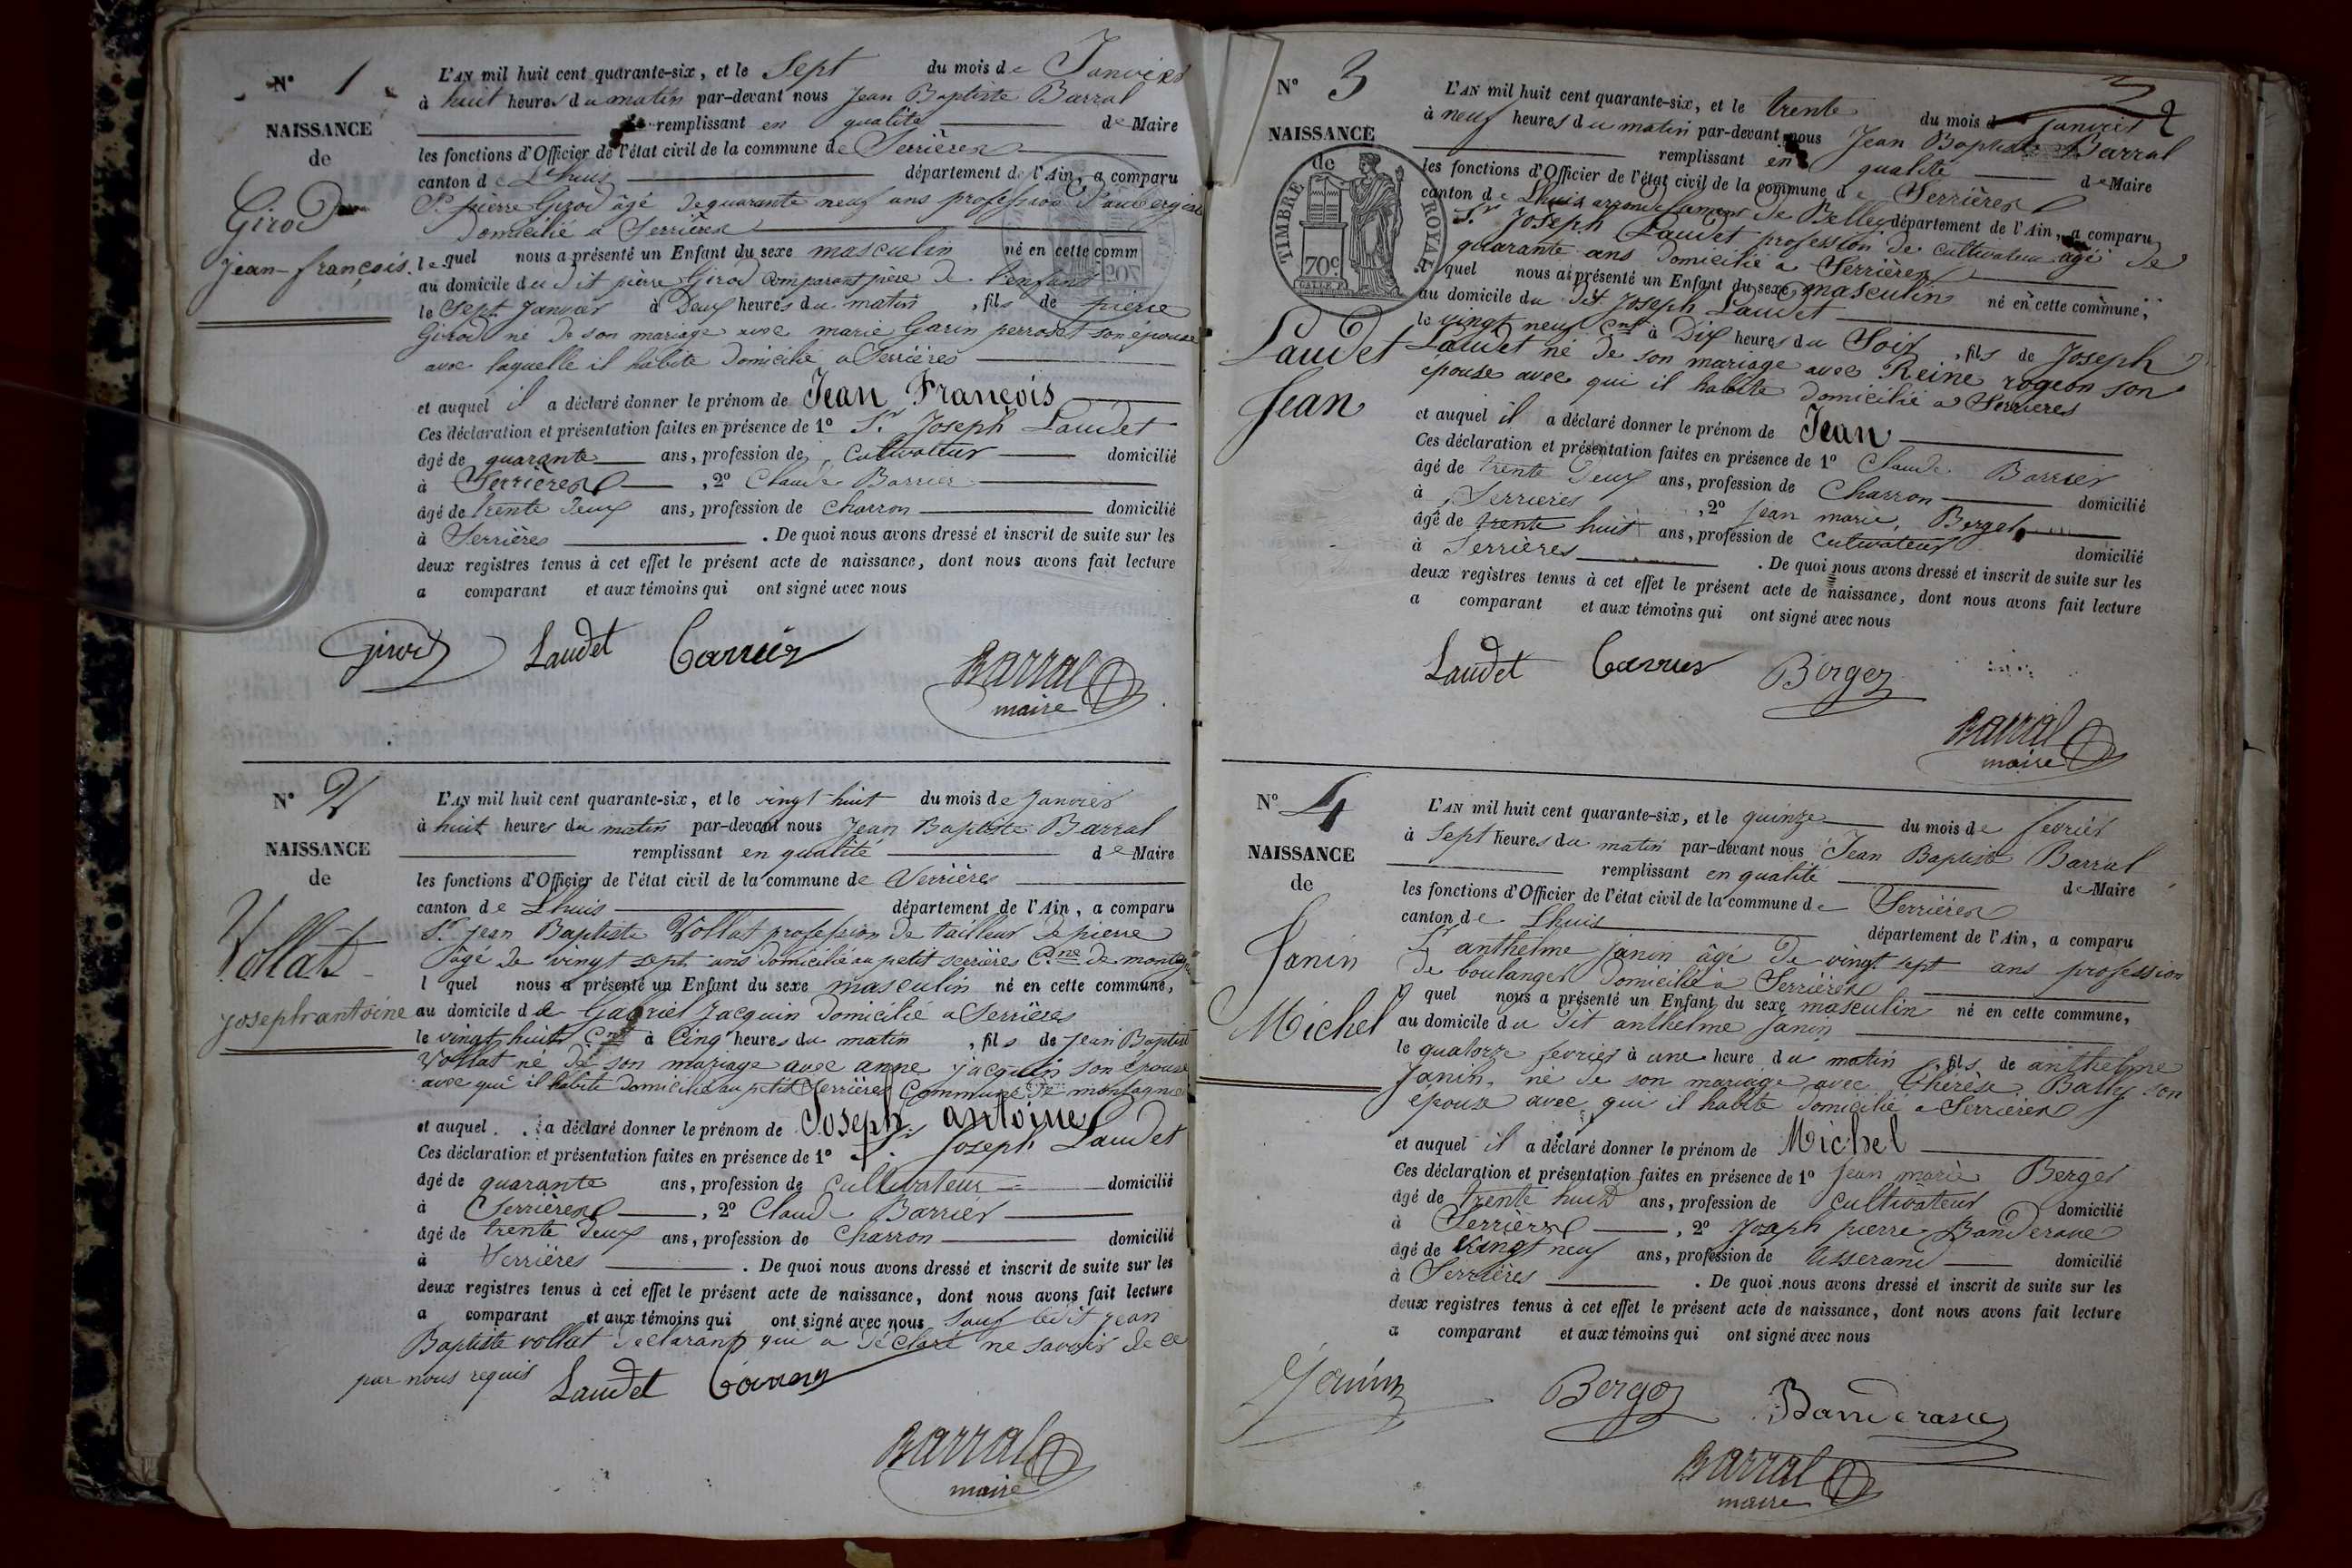 N° 1
NAISSANCE
de
Girod
jean-françois.
L'AN mil huit cent quarante-six, et le Sept du mois de Janvier
à huit heures du matin par-devant nous Jean Baptiste Barral
remplissant en qualité de Maire
les fonctions d'Officier de l'état civil de la commune de Serrières
canton de Lhuis département de l'Ain, a comparu
Sr. pierre Girod âgé de quarante neuf ans profession d'aubergiste
domicilié a Serrières
lequel nous a présenté un Enfant du sexe masculin né en cette comm
au domicile du dit pierre Girod comparant père de l'enfant
le Sept Janvier à Deux heures du matin, fils de pierre
Girod né de son mariage avec marie Garin perrodet son épouse
avec laquelle il habite domicilié a Serrières
et auquel il a déclaré donner le prénom de Jean François
Ces déclaration et présentation faites en présence de 1° Sr. Joseph Laudet
âgé de quarante ans, profession de Cultivateur domicilié
à Serrières, 2° Claude Barrier
âgé de trente deux ans, profession de Charron domicilié
à Serrières. De quoi nous avons dressé et inscrit de suite sur les
deux registres tenus à cet effet le présent acte de naissance, dont nous avons fait lecture
a comparant et aux témoins qui ont signé avec nous
Girod Laudet Barrier
Barral
maire
N° 2
NAISSANCE
de
Vollat
joseph antoine
L'AN mil huit cent quarante-six, et le vingt huit du mois de Janvier
à huit heures du matin par-devant nous Jean Baptiste Barral
remplissant en qualité de Maire
les fonctions d'Officier de l'état civil de la commune de Serrières
canton de Lhuis département de l'Ain, a comparu
Sr. jean Baptiste Vollat profession de tailleur de pierre
âgé de vingt sept ans domicilié au petit serrières Cne de
l quel nous a présenté un Enfant du sexe masculin né en cette commune,
au domicile de Gabriel Jacquin domicilié a Serrières
le vingt huit Cnt à Cinq heures du matin, fils de jean Baptiste
Vollat né de son mariage avec anne jacquin son épouse
avec qui il habite domicilié au petit Serrières Commune de montagnieu
et auquel a déclaré donner le prénom de Joseph antoine
Ces déclaration et présentation faites en présence de 1° Sr. Joseph Laudet
âgé de quarante ans, profession de Cultivateur domicilié
à Serrières, 2° Claude Barrier
âgé de trente deux ans, profession de Charron domicilié
à Serrières. De quoi nous avons dressé et inscrit de suite sur les
deux registres tenus à cet effet le présent acte de naissance, dont nous avons fait lecture
a comparant et aux témoins qui ont signé avec nous Sauf ledit jean
Baptiste vollat declarant qui a déclaré ne savoir de ce
par nous requis Laudet Barrier
Barral
maire
2
N° 3
NAISSANCE
de
TIMBRE ROYAL
70c
Laudet
Jean
L'AN mil huit cent quarante-six, et le trente du mois de janvier
à neuf heures du matin par-devant nous Jean Baptiste Barral
remplissant en qualité de Maire
les fonctions d'Officier de l'état civil de la commune de Serrières
canton de Lhuis arrondissement de Belley département de l'Ain, a comparu
Sr. Joseph Laudet profession de cultivateur âgé de
quarante ans domicilié a Serrières
l quel nous a présenté un Enfant du sexe masculin né en cette commune,
au domicile du dit Joseph Laudet
le vingt neuf Cnt à Dix heures du Soir, fils de Joseph
Laudet né de son mariage avec Reine rogeon son
épouse avec qui il habite domicilié a Serrières
et auquel il a déclaré donner le prénom de Jean
Ces déclaration et présentation faites en présence de 1° Claude Barrier
âgé de trente deux ans, profession de Charron domicilié
à Serrières, 2° jean marie Berger
âgé de trente huit ans, profession de Cultivateur domicilié
à Serrières. De quoi nous avons dressé et inscrit de suite sur les
deux registres tenus à cet effet le présent acte de naissance, dont nous avons fait lecture
a comparant et aux témoins qui ont signé avec nous
Laudet Barrier Berger
Barral
maire
N° 4
NAISSANCE
de
Janin
Michel
L'AN mil huit cent quarante-six, et le quinze du mois de fevrier
à Sept heures du matin par-devant nous Jean Baptiste Barral
remplissant en qualité de Maire
les fonctions d'Officier de l'état civil de la commune de Serrières
canton de Lhuis département de l'Ain, a comparu
Sr anthelme janin âgé de vingt sept ans profession
de boulanger domicilié a Serrières
l quel nous a présenté un Enfant du sexe masculin né en cette commune,
au domicile du dit anthelme Janin
le quatorze fevrier à une heure du matin, fils de anthelme
Janin, né de son mariage avec Thérèse Bally son
épouse avec qui il habite domicilié a Serrières
et auquel il a déclaré donner le prénom de Michel
Ces déclaration et présentation faites en présence de 1° Jean marie Berger
âgé de trente huit ans, profession de Cultivateur domicilié
à Serrières, 2° Joseph pierre Banderave
âgé de vingt neuf ans, profession de tisserand domicilié
à Serrières. De quoi nous avons dressé et inscrit de suite sur les
deux registres tenus à cet effet le présent acte de naissance, dont nous avons fait lecture
a comparant et aux témoins qui ont signé avec nous
Janin Berger Banderave
Barral
maire